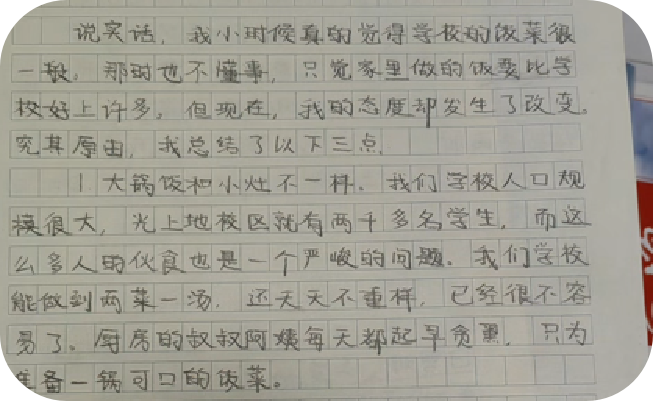 说实话，我小时候真的觉得学校的饭菜很
一般。那时也不懂事，只觉家里做的饭要比学
校好上许多。但现在，我的态度却发生了改变。
究其原由，我总结了以下三点。
1 大锅饭和小灶不一样。我们学校人口规
模很大，光上地校区就有两千多名学生，而这
么多人的伙食也是一个严峻的问题。我们学校
能做到两菜一汤，还天天不重样，已经很不容
易了。厨房的叔叔阿姨每天都起早贪黑，只为
准备一锅可口的饭菜。